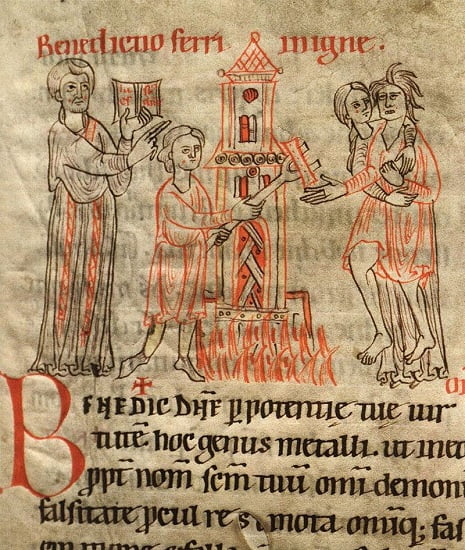 Benedictio ferri in igne.
BENEDIC DÑE ꝑ potentiē tue uir
tutē hoc genus metalli. ut in eo
ꝓpt nom̄ scm̄ tuū om̄i demon
falsitate ꝓcul remota om̄iq; fas